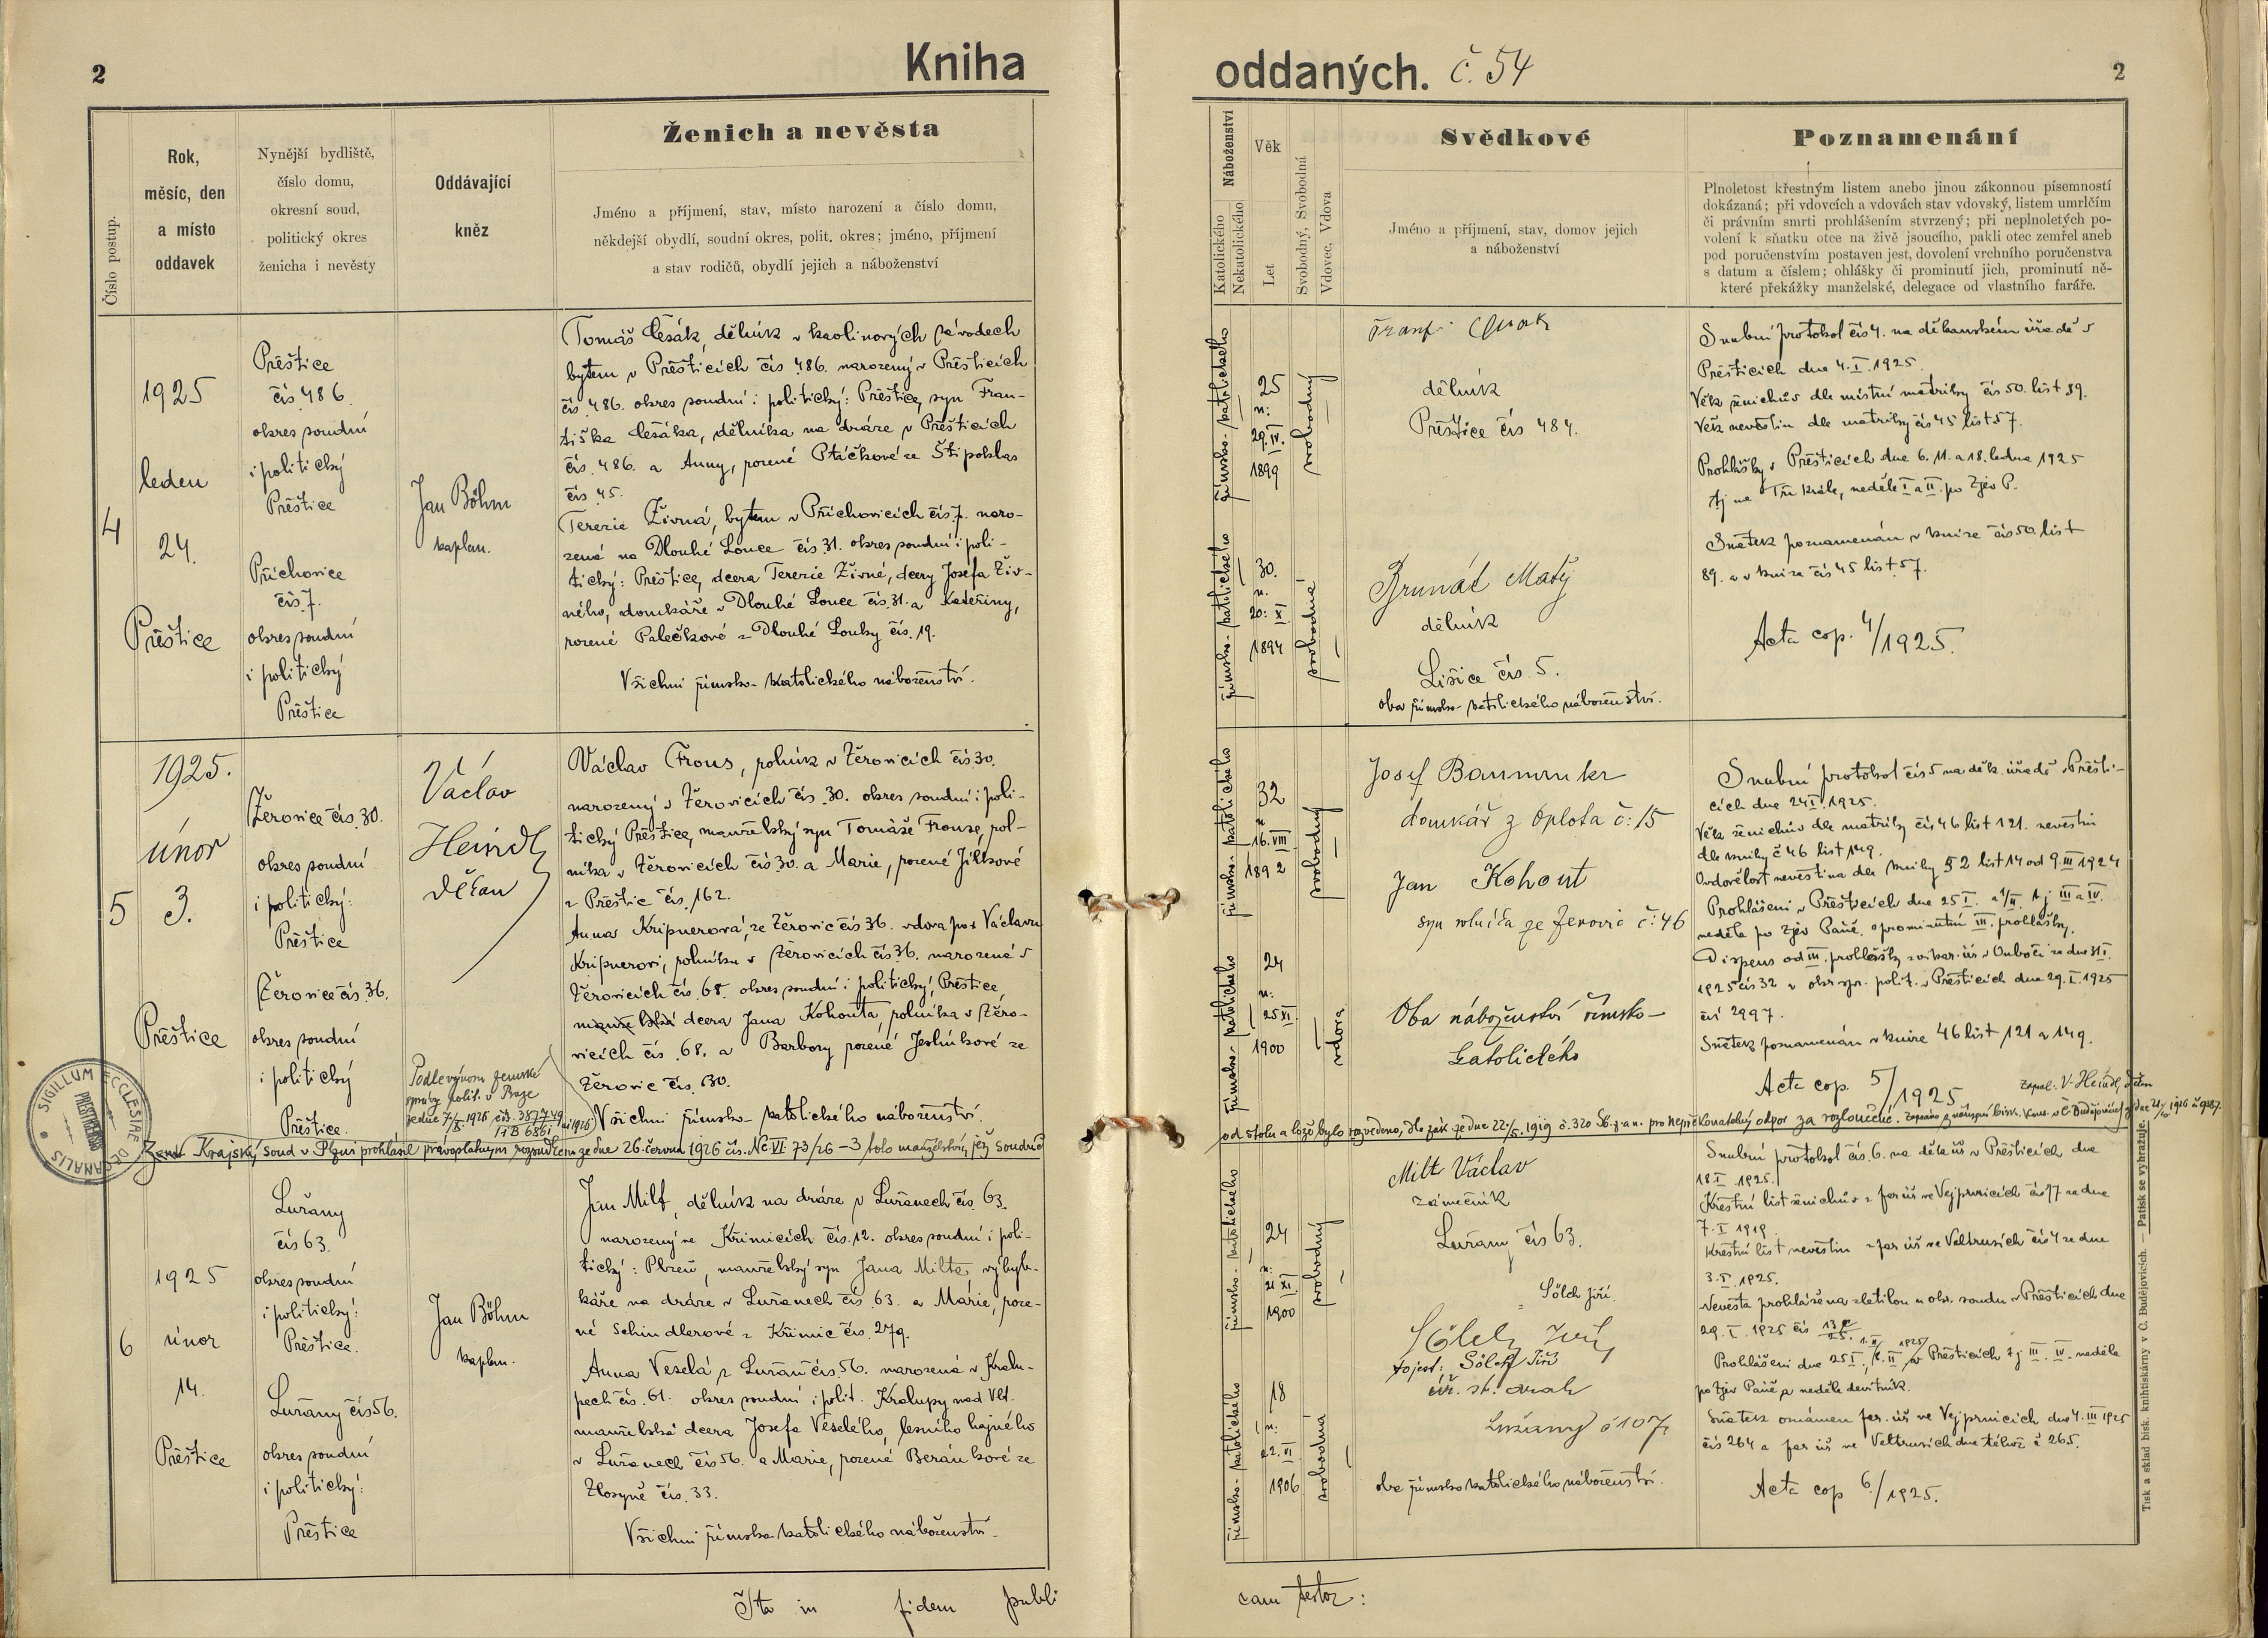 2
Kniha
oddaných. č. 54
2
Číslo postup.
Rok,
měsíc, den
a místo
oddavek
Nynější bydliště,
číslo domu,
okresní soud,
politický okres
ženicha i nevěsty
Oddávající
kněz
Ženich a nevěsta
Jméno a příjmení, stav, místo narození a číslo domu,
někdejší obydlí, soudní okres, polit. okres; jméno, příjmení
a stav rodičů, obydlí jejich a náboženství
Náboženství
Katolického
Nekatolického
Věk
Let
Svobodný, Svobodná
Vdovec, Vdova
Svědkové
Jméno a příjmení, stav, domov jejich
a náboženství
Poznamenání
Plnoletost křestným listem anebo jinou zákonnou písemností
dokázaná; při vdovcích a vdovách stav vdovský, listem umrlčím
či právním smrti prohlášením stvrzený; při neplnoletých po-
volení k sňatku otce na živě jsoucího, pakli otec zemřel aneb
pod poručenstvím postaven jest, dovolení vrchního poručenstva
s datum a číslem; ohlášky či prominutí jich, prominutí ně-
které překážky manželské, delegace od vlastního faráře.
4
1925
leden
24.
Přeštice
Přeštice
čís 486.
okres soudní
i politický
Přeštice
Příchovice
čís. 7.
okres soudní
i politický
Přeštice
Jan Böhm
kaplan.
Tomáš Češák, dělník v kaolinových závodech
bytem v Přešticích čís 486. narozený v Přešticích
čís. 486. okres soudní i politický: Přeštice, syn Fran-
tiška Češáka, dělníka na dráze v Přešticích
čís. 486. a Anny, rozené Ptáčkové ze Štipoklas
čís 45.
Terezie Živná, bytem v Příchovicích čís 7. naro-
zená na Dlouhé Louce čís 31. okres soudní i poli-
tický: Přeštice, dcera Terezie Živné, dcery Josefa Živ-
ného, domkáře v Dlouhé Louce čís. 31. a Kateřiny,
rozené Palečkové z Dlouhé Louky čís. 19.
Všichni římsko-katolického náboženství.
římsko-katolického
25
n:
29. IV.
1899
svobodný
římsko-katolického
30.
n.
20. X
1894
svobodná
dělník
Přeštice čís 484.
Brunát Matěj
dělník
Lišice čís. 5.
oba římsko-katolického náboženství.
Snubní protokol čís 4. na děkanském úřadě v
Přešticích dne 4. I. 1925.
Věk ženichův dle místní matriky čís 50. list 89.
Věk nevěstin dle matriky čís 45 list 57.
Prohlášky v Přešticích dne 6. 11. a 18. ledna 1925
tj na Tři krále, neděle I a II. po Zjev P.
Sňatek poznamenán v knize čís 50. list
89. a v knize čís 45 list 57.
Acta cop. 4/1925.
5
1925.
únor
3.
Přeštice
Žerovice čís. 30.
okres soudní
i politický:
Přeštice
Žerovice čís. 36.
okres soudní
i politický
Přeštice.
Václav
Heindl
děkan
Václav Frous, rolník v Žerovicích čís 30.
narozený v Žerovicích čís. 30. okres soudní i poli-
tický Přeštice, manželský syn Tomáše Frouse, rol-
níka v Žerovicích čís 30. a Marie, rozené Jílkové
z Přeštic čís. 162.
Anna Kripnerová, ze Žerovic čís 36. vdova po Václavu
Kripnerovi, rolníku v Žerovicích čís 36. narozená v
Žerovicích čís. 68. okres soudní i politický, Přeštice
manželská dcera Jana Kohouta, rolníka v Žero-
vicích čís. 68. a Barbory rozené Jeslínkové ze
Žerovic čís. 30.
Všichni římsko-katolického náboženství.
Podle výnosu zemské
správy polit. v Praze
římsko-katolického
32
n
16. VIII
1892
svobodný
římsko-katolického
24
n:
25 XI.
1900
vdova
Josef Baumruker
domkář z Oplota č: 15
Jan Kohout
syn rolníka ze Žerovic č: 46
Oba náboženství římsko-
katolického
Snubní protokol čís 5 na děk. úřadě v Přešti-
cích dne 24 I. 1925.
Věk ženichův dle matriky čís 46 list 121. nevěstin
dle knihy č 46 list 149.
Ovdovělost nevěstina dle knihy 52 list 14 od 9. III 1924
Prohlášení v Přešticích dne 25 I. a 1/II. tj III a IV.
neděle po Zjev Páně, s prominutím III. prohlášky.
Dispens od III. prohlášky z vikar. úř. v Outboči ze dne 31 I.
1925 čís 32 a okr. spr. polit. v Přešticích dne 29. I. 1925
čís 2997.
Sňatek poznamenán v knize 46 list 121 a 149.
Acta cop. 5/1925
Zapsal: V. Heindl, děkan
SIGILLUM ECCLESIAE DECANALIS
Krajský soud v Plzni prohlásil právoplatným rozsudkem ze dne 26. června 1926 čís. Nc VI 73/26 – 3 toto manželství, jež soudně
od stolu a lože bylo rozvedeno, dle zák. ze dne 22./5. 1919 č. 320 Sb. z. a n. pro nepřekonatelný odpor za rozloučené.
6
1925
únor
14.
Přeštice
Lužany
čís 63.
okres soudní
i politický:
Přeštice.
Lužany čís 56.
okres soudní
i politický:
Přeštice
Jan Böhm
kaplan.
Jan Milt, dělník na dráze v Lužanech čís. 63.
narozený ve Křimicích čís. 12. okres soudní i poli-
tický: Plzeň, manželský syn Jana Milta, výhyb-
káře na dráze v Lužanech čís. 63. a Marie, roze-
né Schindlerové z Křimic čís. 279.
Anna Veselá z Lužan čís. 56. narozená v Kralu-
pech čís. 61. okres soudní i polit. Kralupy nad Vlt.
manželská dcera Josefa Veselého, lesního hajného
v Lužanech čís 56. a Marie, rozené Beránkové ze
Zlosyně čís. 33.
Všichni římsko-katolického náboženství.
římsko-katolického
24
n:
21 XI.
1900
svobodný
římsko-katolického
18
n:
22. VI
1906
svobodná
Milt Václav
zámečník
Lužany čís 63.
Sölch Jiří
Sölch Jiří
to jest: Sölch Jiří
zříz. st. drah
Lužany č 107
oba římsko katolického náboženství.
Snubní protokol čís. 6. na děk. úř v Přešticích dne
18 I 1925.
Křestní list ženichův z far úř ve Vejprnicích čís 17 ze dne
7. I 1919.
Křestní list nevěstin z far úř ve Veltrusích čís 4 ze dne
3. I. 1925.
Nevěsta prohlášena zletilou u okr. soudu v Přešticích dne
29. I. 1925 čís
Prohlášení dne 25 I. 1. II. v Přešticích tj III. IV. neděle
po Zjev Páně a neděle devítník.
Sňatek oznámen far. úř ve Vejprnicích dne 4. III 1925
čís 264 a far úř ve Veltrusích dne téhož č 265.
Acta cop 6./1925.
Ita in fidem publi
cam testor:
Tisk a sklad bisk. knihtiskárny v Č. Budějovicích. — Patisk se vyhražuje.